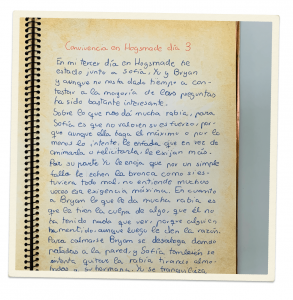 Convivencia en Hogsmade día 3
En mi tercer día en Hogsmade he
estado junto a Sofía, Xu y Bryan
y aunque no nos ha dado tiempo a con-
testar a la mayoría de las preguntas
ha sido bastante interesante.
Sobre lo que nos da mucha rabia, para
Sofía es que no valoren su esfuerzo, por-
que aunque ella haga el máximo o por lo
menos lo intente, le enfada que en vez de
animarla o felicitarla le exijan más.
Por su parte Xu le enoja que por un simple
fallo le echen la bronca como si es-
tuviera todo mal, no entiende muchas
veces esa exigencia máxima. En cuanto
a Bryan lo que le da mucha rabia es
que le echen la culpa de algo que él no
ha tenido nada que ver, porque alguien
aunque luego le den la razón.
Para calmarse Bryan se desahoga dando
patadas a la pared, y Sofía también se
intenta quitar la rabia tirando almo-
hadas a su hermana. Xu se tranquiliza